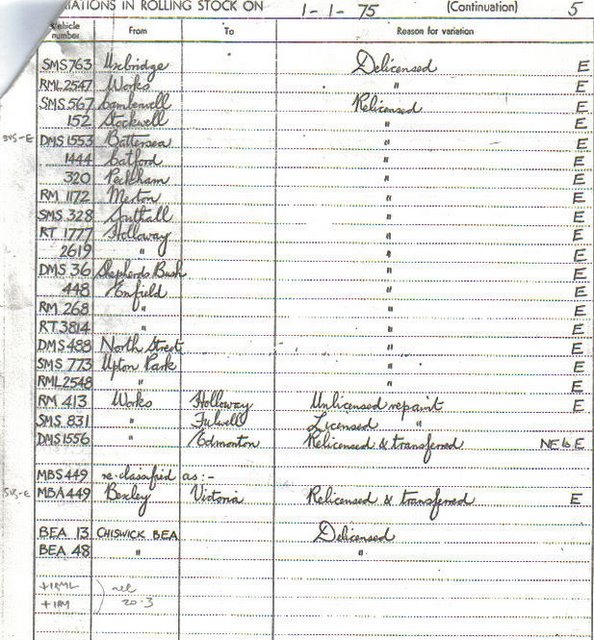 IATIONS IN ROLLING STOCK ON 1-1-75 (Continuation) 5
Vehicle number From To Reason for variation
SMS 763 Uxbridge Delicensed E
RML 2547 Works " E
SMS 567 Camberwell Relicensed E
152 Stockwell " E
SVS-E DMS 1553 Battersea " E
1444 Catford " E
320 Peckham " E
RM 1172 Merton " E
SMS 328 Southall " E
RT 1777 Holloway " E
2619 " " E
DMS 36 Shepherds Bush " E
448 Enfield " E
RM 268 " " E
RT 3814 " " E
DMS 488 North Street " E
SMS 773 Upton Park " E
RML 2548 " " E
RM 413 Works Holloway Unlicensed repaint E
SMS 831 " Fulwell Licensed "
DMS 1556 " Edmonton Relicensed & transferred NE to E
MBS 449 re-classified as:-
SVS-E MBA 449 Bexley Victoria Relicensed & transferred E
BEA 13 CHISWICK BEA Delicensed
BEA 48 " "
+1RML
+1RM 20.3